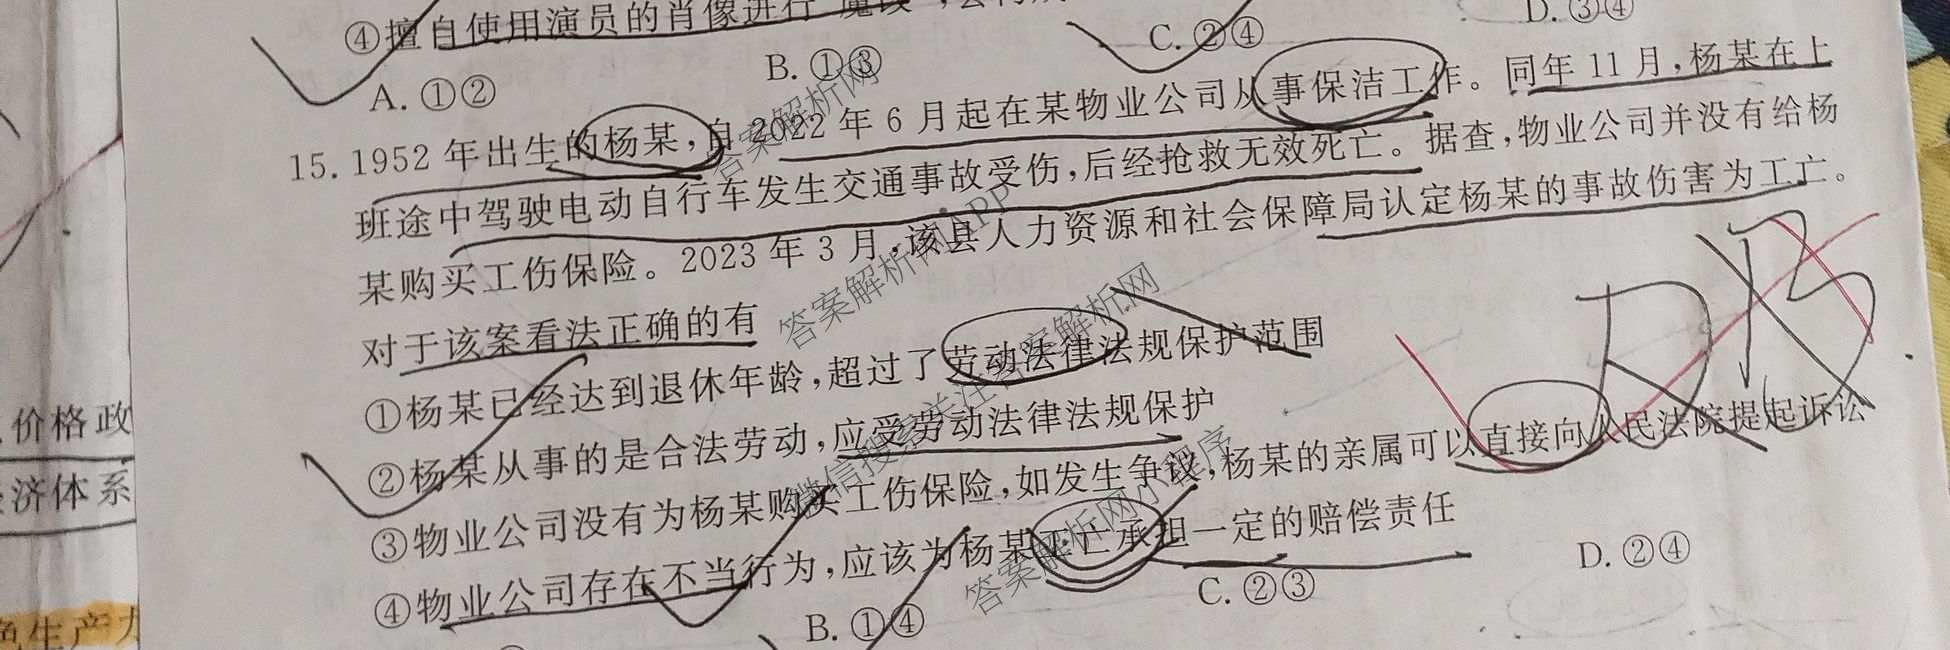 ④擅自使用演员的肖像进行“魔改”,
A. ①②
B. ①③
C. ②④
D. ③④
15. 1952 年出生的杨某,自 2022 年 6 月起在某物业公司从事保洁工作。同年 11 月,杨某在上
班途中驾驶电动自行车发生交通事故受伤,后经抢救无效死亡。据查,物业公司并没有给杨
某购买工伤保险。2023 年 3 月,该县人力资源和社会保障局认定杨某的事故伤害为工亡。
对于该案看法正确的有
①杨某已经达到退休年龄,超过了劳动法律法规保护范围
②杨某从事的是合法劳动,应受劳动法律法规保护
③物业公司没有为杨某购买工伤保险,如发生争议,杨某的亲属可以直接向人民法院提起诉讼
④物业公司存在不当行为,应该为杨某死亡承担一定的赔偿责任
B. ①④
C. ②③
D. ②④
价格政
济体系
色生产力
答案解析网
答案解析网APP
答案解析网
微信搜索关注答案解析网
答案解析网小程序